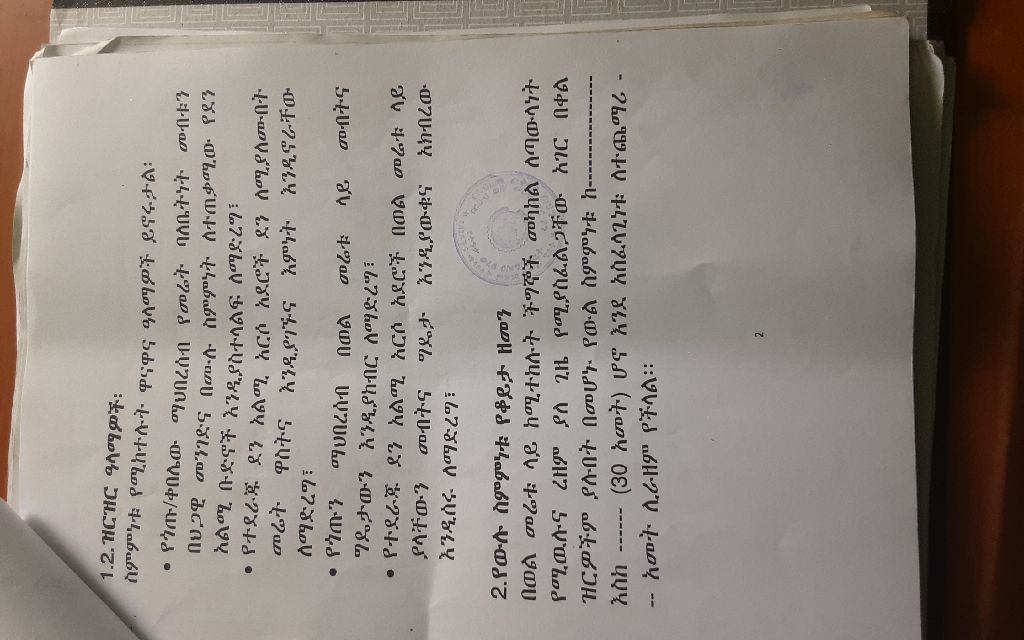 1.2.ዝርዝር ዓላማዎች፡
ስምምነቱ የሚከተሉት ዋናዋና ዓላማዎች ይኖሩታል፡
• የጎጡ/ቀበሌው ማህበረሰብ የመሬት ባለቤትነት መብቱን
በህጋዊ መንገድና በሙሉ ስምምነት ለተጠቃሚው የደን
አልሚ ቡድኖች እንዲያስተላልፍ ለማድረግ፤
• የተደራጁ ደን አልሚ አርሶ አደሮች ደን ለሚያለሙበት
መሬት ዋስትና እንዲያገኙና እምነት እንዲኖራቸው
ለማድረግ፤
• የጎጡን ማህበረሰብ በወል መሬቱ ላይ መብትና
ግዴታውን እንዲያከብር ለማድረግ፤
• የተደራጁ ደን አልሚ አርሶ አደሮች በወል መሬቱ ላይ
ያላቸውን መብትና ግዴታ እንዲያውቁና አክብረው
እንዲሰሩ ለማድረግ፤
2.የውሉ ስምምነቱ የቆይታ ዘመን
በወል መሬቱ ላይ ከሚተከሉት ችግኞች መካከል ለጣውላነት
የሚውሉና ረዘም ያለ ጊዜ የሚያስፈልጋቸው አገር በቀል
ዝርዎችም ያሉበት በመሆኑ የውል ስምምነቱ ከ-------------------
እስከ ------ (30 አመት) ሆኖ እንደ አስፈላጊነቱ ለተጨማሪ -
-- አመት ሊራዘም የችላል።
2